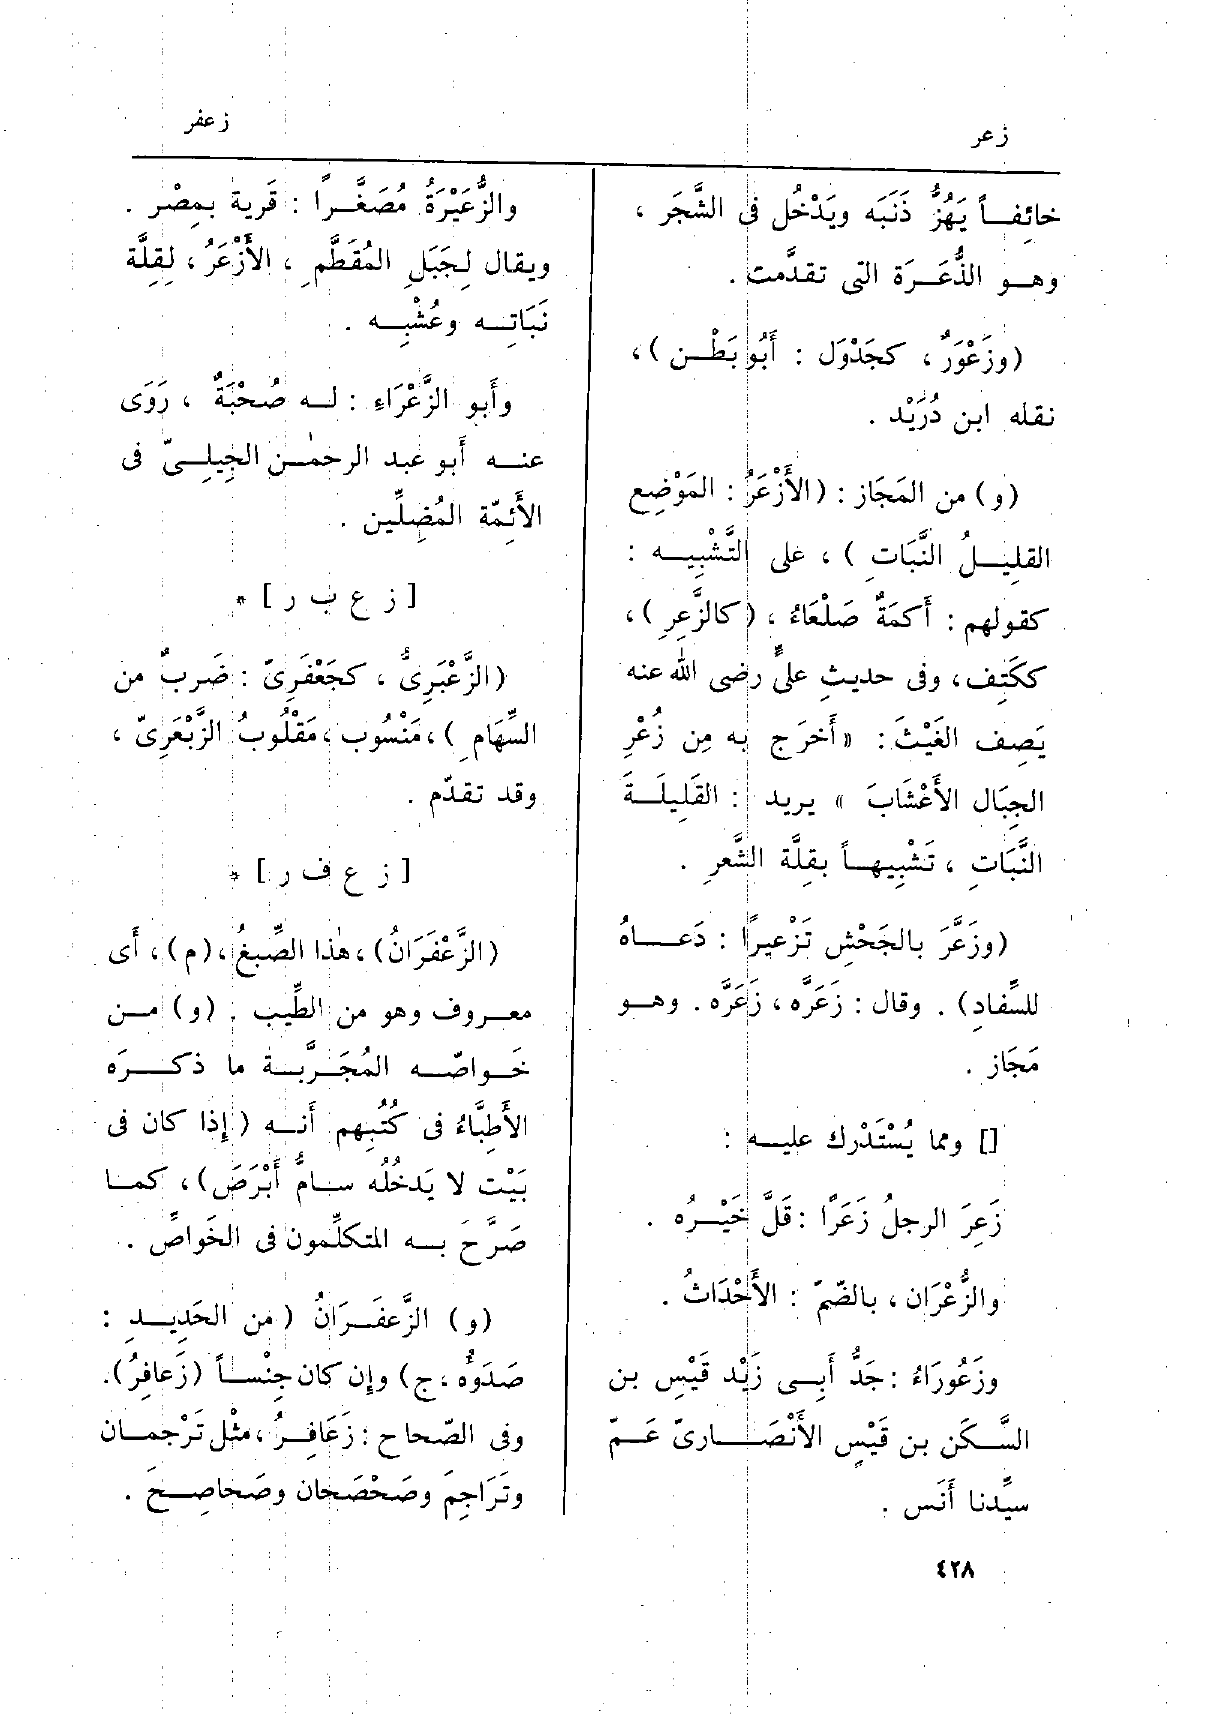 زعر
زعفر
خائِفـاً يَهُزُّ ذَنَبَه ويَدْخُل فى الشَّجَر ،
وهـو الذُّعَـرَة التى تقدَّمت .
(وزَعْوَرٌ ، كجَدْوَل : أَبُو بَطْـن ) ،
نقله ابن دُرَيْد .
(و) من المَجَاز : (الأَزْعَرُ : المَوْضِع
القلِيـلُ النَّبَاتِ ) ، على التَّشْبِيـه :
كقولهم : أَكمَةٌ صَلْعَاءُ ، (كالزَّعِرِ ) ،
ككَتِف ، وفى حديثِ علىٍّ رضى الله عنه
يَصِف الغَيْثَ : « أَخرَج به مِن زُعْرِ
الجِبَال الأَعْشَابَ » يريد : القَلِيلَـةَ
النَّبَاتِ ، تَشْبِيهـاً بقِلَّة الشَّعرِ .
(وزَعَّرَ بالجَحْشِ تَزْعيرًا : دَعَـاهُ
للسِّفَادِ ) . وقال : زَعَرَّه ، زَعَرَّه . وهـو
مَجَاز .
[] ومما يُسْتَدْرك عليـه :
زَعِرَ الرجلُ زَعَرًا : قَلَّ خَيْـرُه .
والزُّعْرَان ، بالضّمّ : الأَحْدَاثُ .
وزَعُورَاءُ : جَدُّ أَبِـى زَيْد قَيْسِ بن
السَّـكَن بن قَيْسٍ الأَنْصَـارىّ عَـمّ
سيِّدنا أَنَس .
والزُّعَيْرَةُ مُصَغَّـرًا : قَرية بمِصْر .
ويقال لِجَبَلِ المُقَطَّمِ ، الأَزْعَرُ ، لِقِلَّة
نَبَاتِـه وعُشْبِـه .
وأَبو الزَّعْرَاءِ : لـه صُحْبَةٌ ، رَوَى
عنـه أَبو عبد الرحمٰـن الجِيلِـىّ فى
الأَئِمّة المُضِلِّين .
[ ز ع ب ر ] *
(الزَّعْبَرِىُّ ، كجَعْفَرِىّ : ضَربٌ من
السِّهَامِ ) ، مَنْسُوب ، مَقْلُوبُ الزَّبْعَرِىّ ،
وقد تقدّم .
[ ز ع ف ر ] *
(الزَّعْفَرَانُ) ، هٰذا الصِّبغُ ، (م) ، أَى
معـروف وهو من الطِّيب . (و) مـن
خَـواصّـه المُجَـرَّبـة ما ذكـرَه
الأَطِبَّاءُ فى كُتُبهم أَنـه ( إِذا كان فى
بَيْت لا يَدخُلُه سـامُّ أَبْرَصَ) ، كمـا
صَرَّحَ بـه المتكلِّمون فى الخَواصِّ .
(و) الزَّعفَـرَانُ (من الحَدِيـدِ :
صَدَؤُه ، ج) وإِن كان جِنْسـاً (زَعافِرُ).
وفى الصّحاح : زَعَافِـرُ ، مثْل تَرْجمـان
وتَرَاجِمَ وصَحْصَحان وصَحاصِـحَ .
٤٢٨